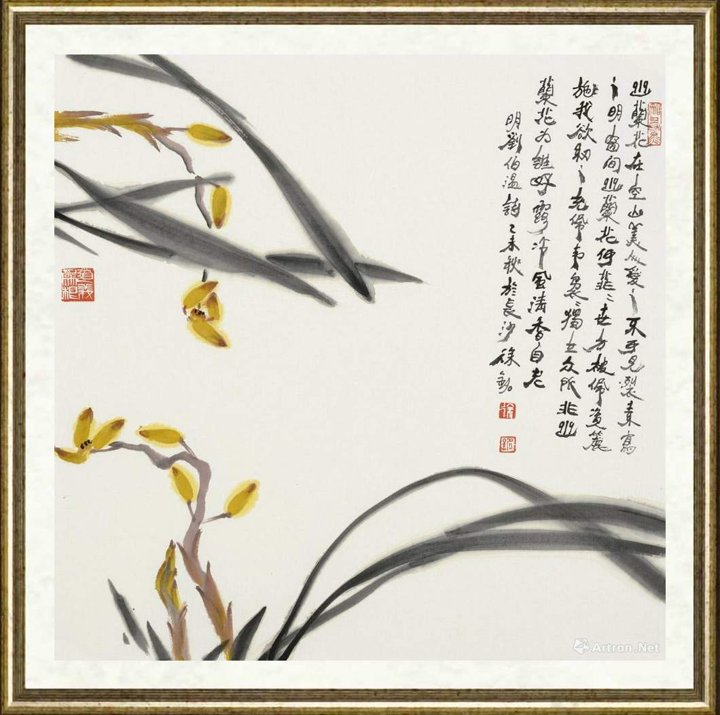 幽蘭花在空山美人愛之不可見裂素寫
之明窗间幽蘭花何菲〻世方被佩資簏
施我欲纫之充佩韦裊〻獨立众所非幽
蘭花为誰好露冷風清香自老
明劉伯温詩乙未秋於長沙徐
Artron.Net